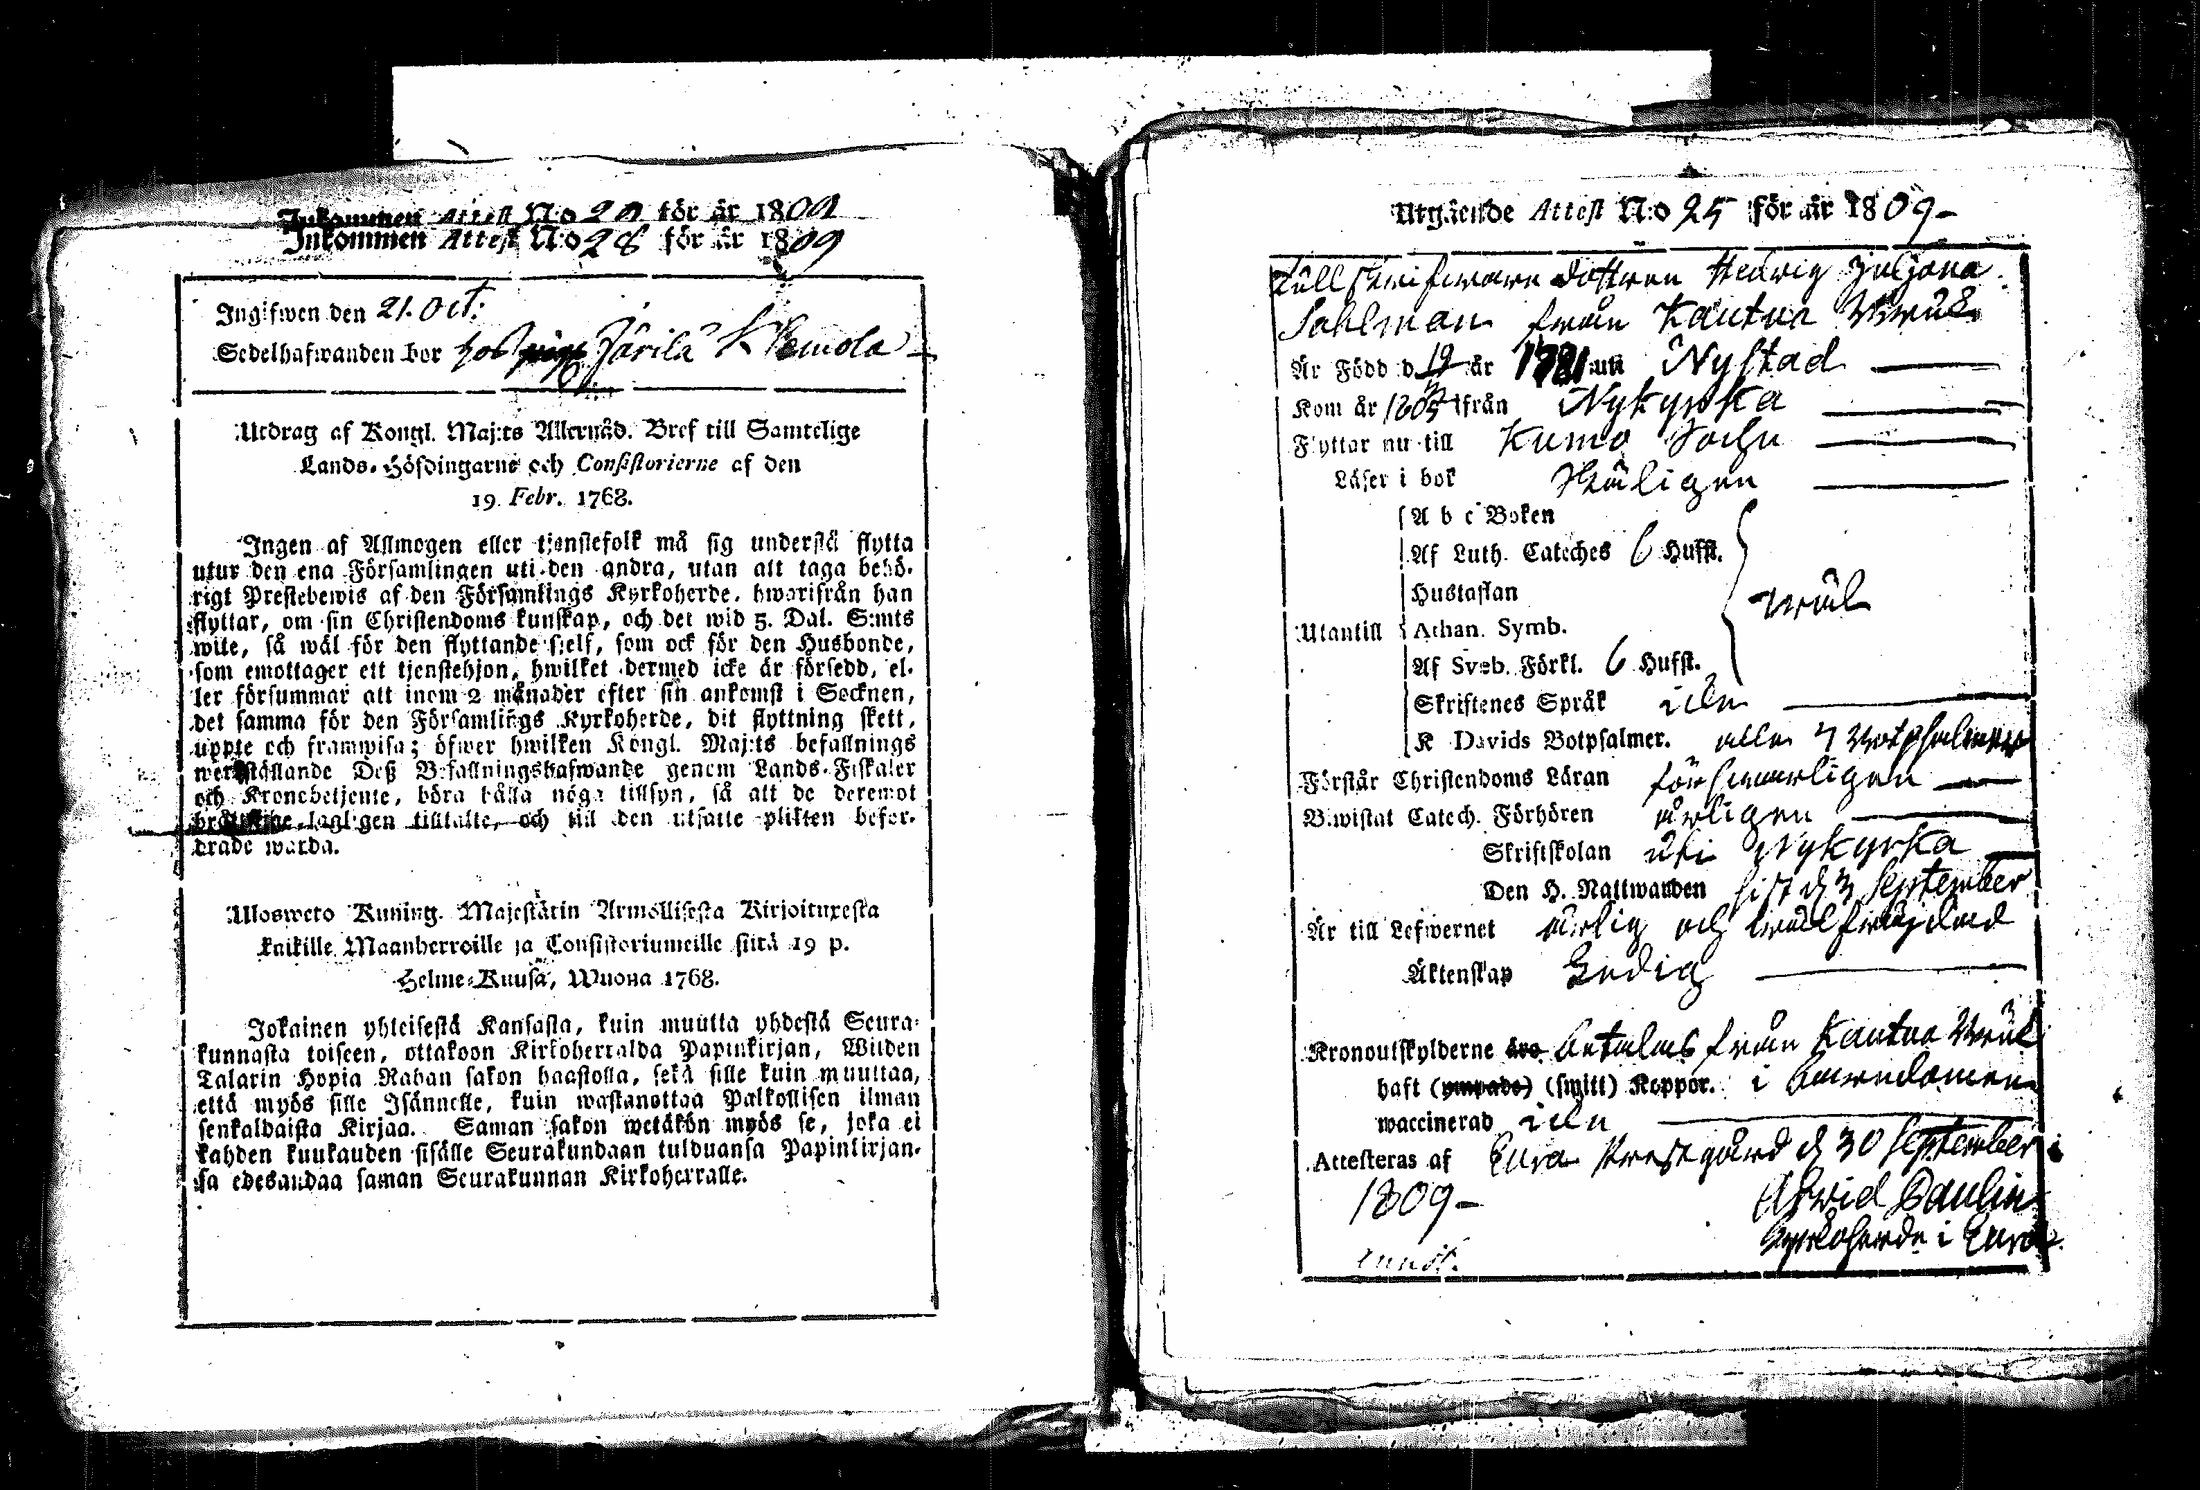 Inkommen Attest N:o 28 för år 1809
Inkommen Attest N:o 28 för år 1809
Ingifwen den 21. Oct:
Sedelhafwanden bor hos Järilä Klemola
Utdrag af Kongl. Maj:ts Allernåd. Bref till Samtelige
Lands-Höfdingarne och Consistorierne af den
19. Febr. 1768.
Ingen af Allmogen eller tjenstefolk må sig understå flytta
utur den ena Församlingen uti den andra, utan att taga behö-
rigt Prestebewis af den Församlings Kyrkoherde, hwarifrån han
flyttar, om sin Christendoms kunskap, och det wid 5. Dal. S:mts
wite, så wäl för den flyttande sjelf, som ock för den Husbonde,
som emottager ett tjenstehjon, hwilket dermed icke är försedd, el-
ler försummar att inom 2 månader efter sin ankomst i Socknen,
det samma för den Församlings Kyrkoherde, dit flyttning skett,
uppte och framwisa; öfwer hwilken Kongl. Maj:ts befallnings
werkställande Deß Befallningshafwande genom Lands-Fiskaler
och Kronobetjente, böra hålla nöga tillsyn, så att de deremot
lagligen tilltalte, och till den utsatte plikten befor-
drade warda.
Ulosweto Kuning. Majestätin Armollisesta Kirjoituxesta
kaikille Maanherroille ja Consistoriumeille siitä 19 p.
Helme-Kuusa, Wuona 1768.
Jokainen yhteisestä Kansasta, kuin muutta yhdestä Seura-
kunnasta toiseen, ottakoon Kirkoherralda Papinkirjan, Wiiden
Talarin Hopia Rahan sakon haastolla, sekä sille kuin muuttaa,
että myös sille Isännelle, kuin wastanottaa Palkollisen ilman
senkaldaista Kirjaa. Saman sakon wetäkön myös se, joka ei
kahden kuukauden sisälle Seurakundaan tulduansa Papinkirjan-
sa edesandaa saman Seurakunnan Kirkoherralle.
Utgående Attest N:o 25 för år 1809-
Tullskrifware dottren Hedwig Juljana
Sahlman från Kautua Bruk
Är Född d. 19 år 1781 uti Nystad
Kom år 1805 ifrån Nykyrka
Flyttar nu till Kumo Sochn
Läser i bok
A b c Boken
Af Luth. Cateches 6 Hufst.
Hustaflan
wäl
Utantill Athan. Symb.
Af Sveb. Förkl. 6 Hufst.
Skriftenes Språk
K Davids Botpsalmer. alla 7 Botpsalmer
Förstår Christendoms Läran förswarligen
Biwistat Catech. Förhören årligen
Skriftskolan uti Nykyrka
Den H. Nattwarden sist d. 3 September
Är till Lefwernet ärlig och wälfräjdad
Äktenskap Ledig
Kronoutskylderne äro betalas från Kautua Bruk
haft (ympade) (smitt) Koppor. i
waccinerad
Attesteras af Eura Prestgård d. 30 September
1809-
Arvid Paulin
Kyrkoherde i Eura